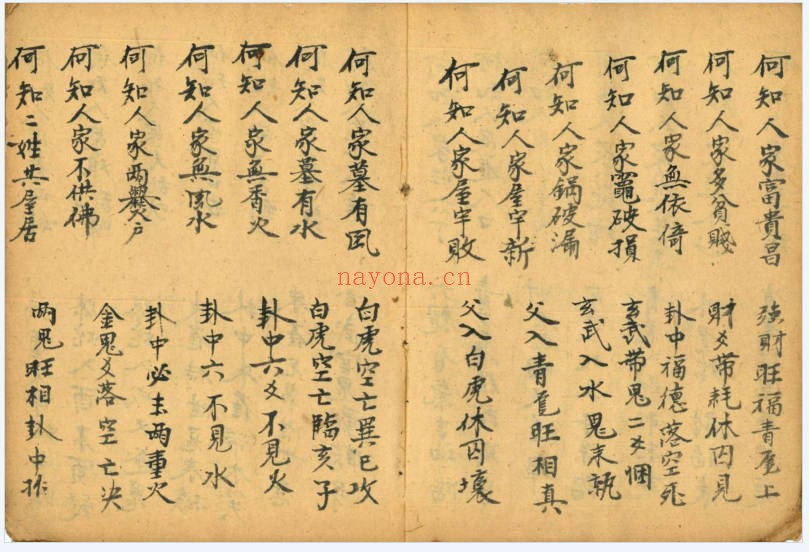 何知人家富貴昌 強財旺福青尨上
何知人家多貧賤 財爻帶耗休囚見
何知人家無依倚 卦中福德落空死
何知人家竈破損 玄武帶鬼二爻悃
何知人家鍋破漏 玄武入水鬼末執
何知人家屋宇新 父入青尨旺相真
何知人家屋宇敗 父入白虎休囚壞
何知人家墓有风 白虎空亡巽巳攻
何知人家墓有水 白虎空亡臨亥子
何知人家無香火 卦中六爻不見火
何知人家無风水 卦中六不見水
何知人家兩爨户 卦中必主兩重火
何知人家不供佛 金鬼爻落空亡决
何知二姓共屋居 兩鬼旺相卦中
nayona.cn